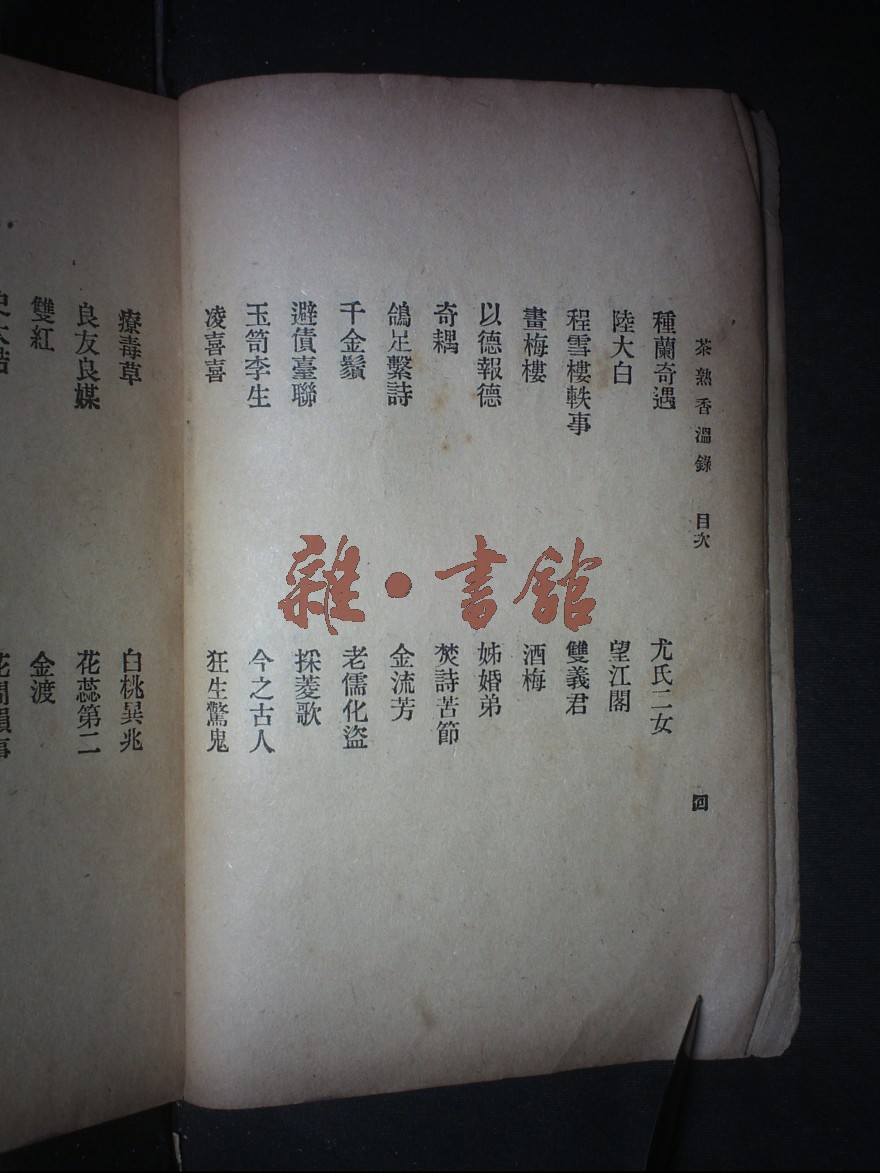 茶熟香溫錄 目次
種蘭奇遇 尤氏二女
陸大白 望江閣
程雪樓軼事 雙義君
畫梅樓 酒梅
以德報德 姊婚弟
奇耦 焚詩苦節
鴿足繫詩 金流芳
千金鬚 老儒化盜
避債臺聯 採菱歌
玉笥李生 今之古人
凌喜喜 狂生驚鬼
療毒草 白桃異兆
良友良媒 花蕊第二
雙紅 金渡
雜·書館